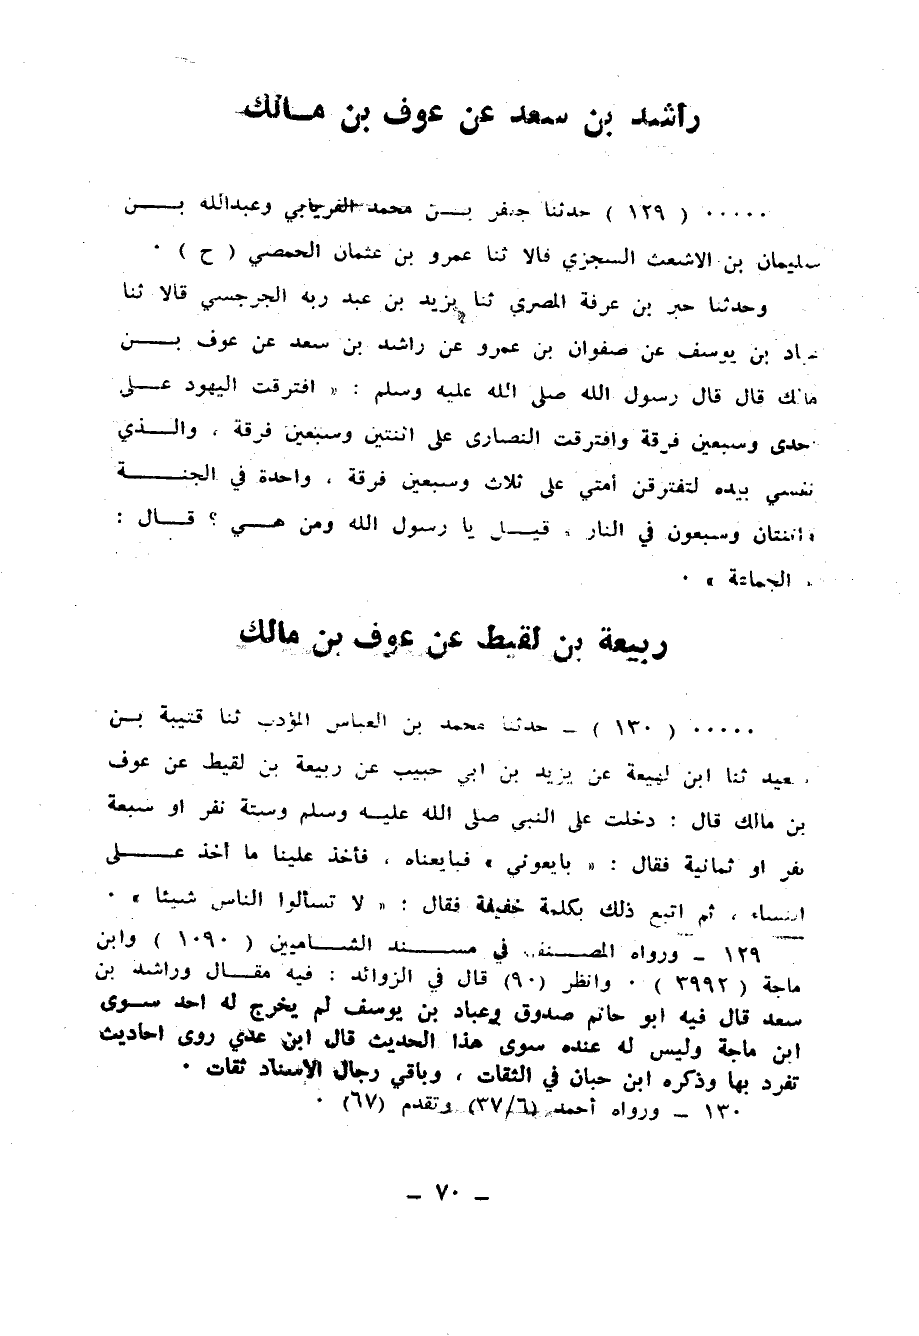 راشد بن سعد عن عوف بن مالك
٠٠٠٠٠ ( ١٢٩ ) حدثنا جعفر بن محمد الفريابي وعبدالله بن
سليمان بن الاشعث السجزي قالا ثنا عمرو بن عثمان الحمصي ( ح ) ٠
وحدثنا حبر بن عرفة المصري ثنا يزيد بن عبد ربه الجرجسي قالا ثنا
باد بن يوسف عن صفوان بن عمرو عن راشد بن سعد عن عوف بن
مالك قال قال رسول الله صلى الله عليه وسلم : « افترقت اليهود على
حدى وسبعين فرقة وافترقت النصارى على اثنتين وسبعين فرقة ، والذي
نفسي بيده لتفترقن أمتي على ثلاث وسبعين فرقة ، واحدة في الجنة
واثنتان وسبعون في النار ، قيل يا رسول الله ومن هي ؟ قال :
، الجماعة » ٠
ربيعة بن لقيط عن عوف بن مالك
٠٠٠٠٠ ( ١٣٠ ) ـ حدثنا محمد بن العباس المؤدب ثنا قتيبة بن
سعيد ثنا ابن لهيعة عن يزيد بن ابي حبيب عن ربيعة بن لقيط عن عوف
بن مالك قال : دخلت على النبي صلى الله عليه وسلم وستة نفر او سبعة
نفر او ثمانية فقال : « بايعوني » فبايعناه ، فأخذ علينا ما أخذ على
النساء ، ثم اتبع ذلك بكلمة خفيفة فقال : « لا تسألوا الناس شيئا » ٠
١٢٩ ـ ورواه المصنف في مسند الشاميين ( ١٠٩٠ ) وابن
ماجة ( ٣٩٩٢ ) ٠ وانظر (٩٠) قال في الزوائد : فيه مقال وراشد بن
سعد قال فيه ابو حاتم صدوق وعباد بن يوسف لم يخرج له احد سوى
ابن ماجة وليس له عنده سوى هذا الحديث قال ابن عدي روى احاديث
تفرد بها وذكره ابن حبان في الثقات ، وباقي رجال الاسناد ثقات ٠
١٣٠ ـ ورواه أحمد (٣٧/٦) وتقدم (٦٧) ٠
ـ ٧٠ ـ